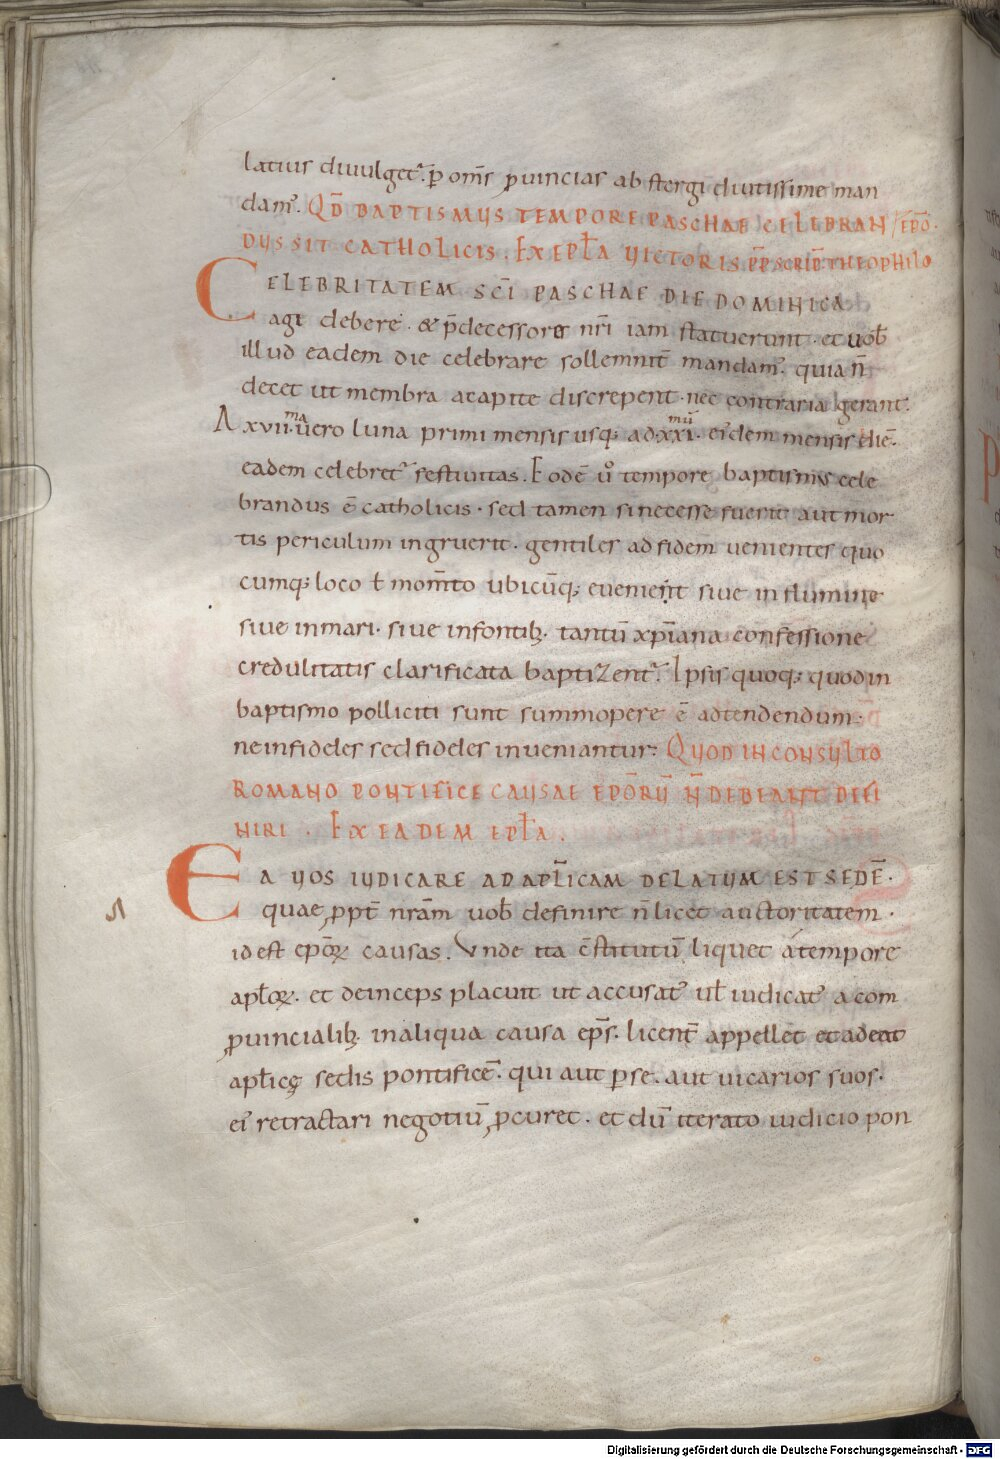 latius diuulget᷑. p̱ om̅s ꝓuincias abstergi diutissime man
dam᷒. QD̅ BAPTISMUS TEMPORE PASCHAE CELEBRAN / EPO̅
DUS SIT CATHOLICIS. EX EPƚA VICTORIS PP̅ SCRIPT̅ THEOPHILO
CELEBRITATEM SC̅I PASCHAE DIE DOMINICA
agi debere. & p̅decessores nr̅i iam statuerunt. et uob̅
illud eadem die celebrare sollemnit̅ mandam᷒. quia n̅
decet ut membra a capite discrepent. nec contraria gerant.
A xvii.ma uero luna primi mensis usq; ad. xxi.mu̅ ei᷒dem mensis die̅.
eadem celebret᷑ festiuitas. Eode̅ uͦ tempore baptismus cele
brandus e̅ catholicis. sed tamen si necesse fuerit aut mor
tis periculum ingruerit. gentiles ad fidem uenientes quo
cumq; loco ƚ mom̅to ubicu̅q; euenerit siue in flumine
siue in mari. siue in fontib; tantu̅ xp̅iana confessione
credulitatis clarificata baptizent᷑. Ipsis quoq; quod in
baptismo polliciti sunt summopere e̅ adtendendum.
ne infideles sed fideles inueniantur. QUOD INCONSULTO
ROMANO PONTIFICE CAUSAE EPO̅RU̅ N̅ DEBEANT DEFI
NIRI. EX EADEM EPƚA.
EA UOS IUDICARE AD APƚICAM DELATUM EST SEDE̅.
quae ꝓpt̅ nr̅am uob̅ definire n̅ licet auctoritatem.
id est epo̅ꝝ causas. Unde ita c̅stitutu̅ liquet a tempore
apƚoꝝ. et deinceps placuit ut accusat᷒ uƚ iudicat᷒ a com
ꝓuincialib; in aliqua causa ep̅s. licent̅ appellet et adeat
apƚicę sedis pontifice̅. qui aut p̱ se. aut uicarios suos.
ei᷒ retractari negotiu̅ ꝓcuret. et du̅ iterato iudicio pon
Digitalisierung gefördert durch die Deutsche Forschungsgemeinschaft - DFG